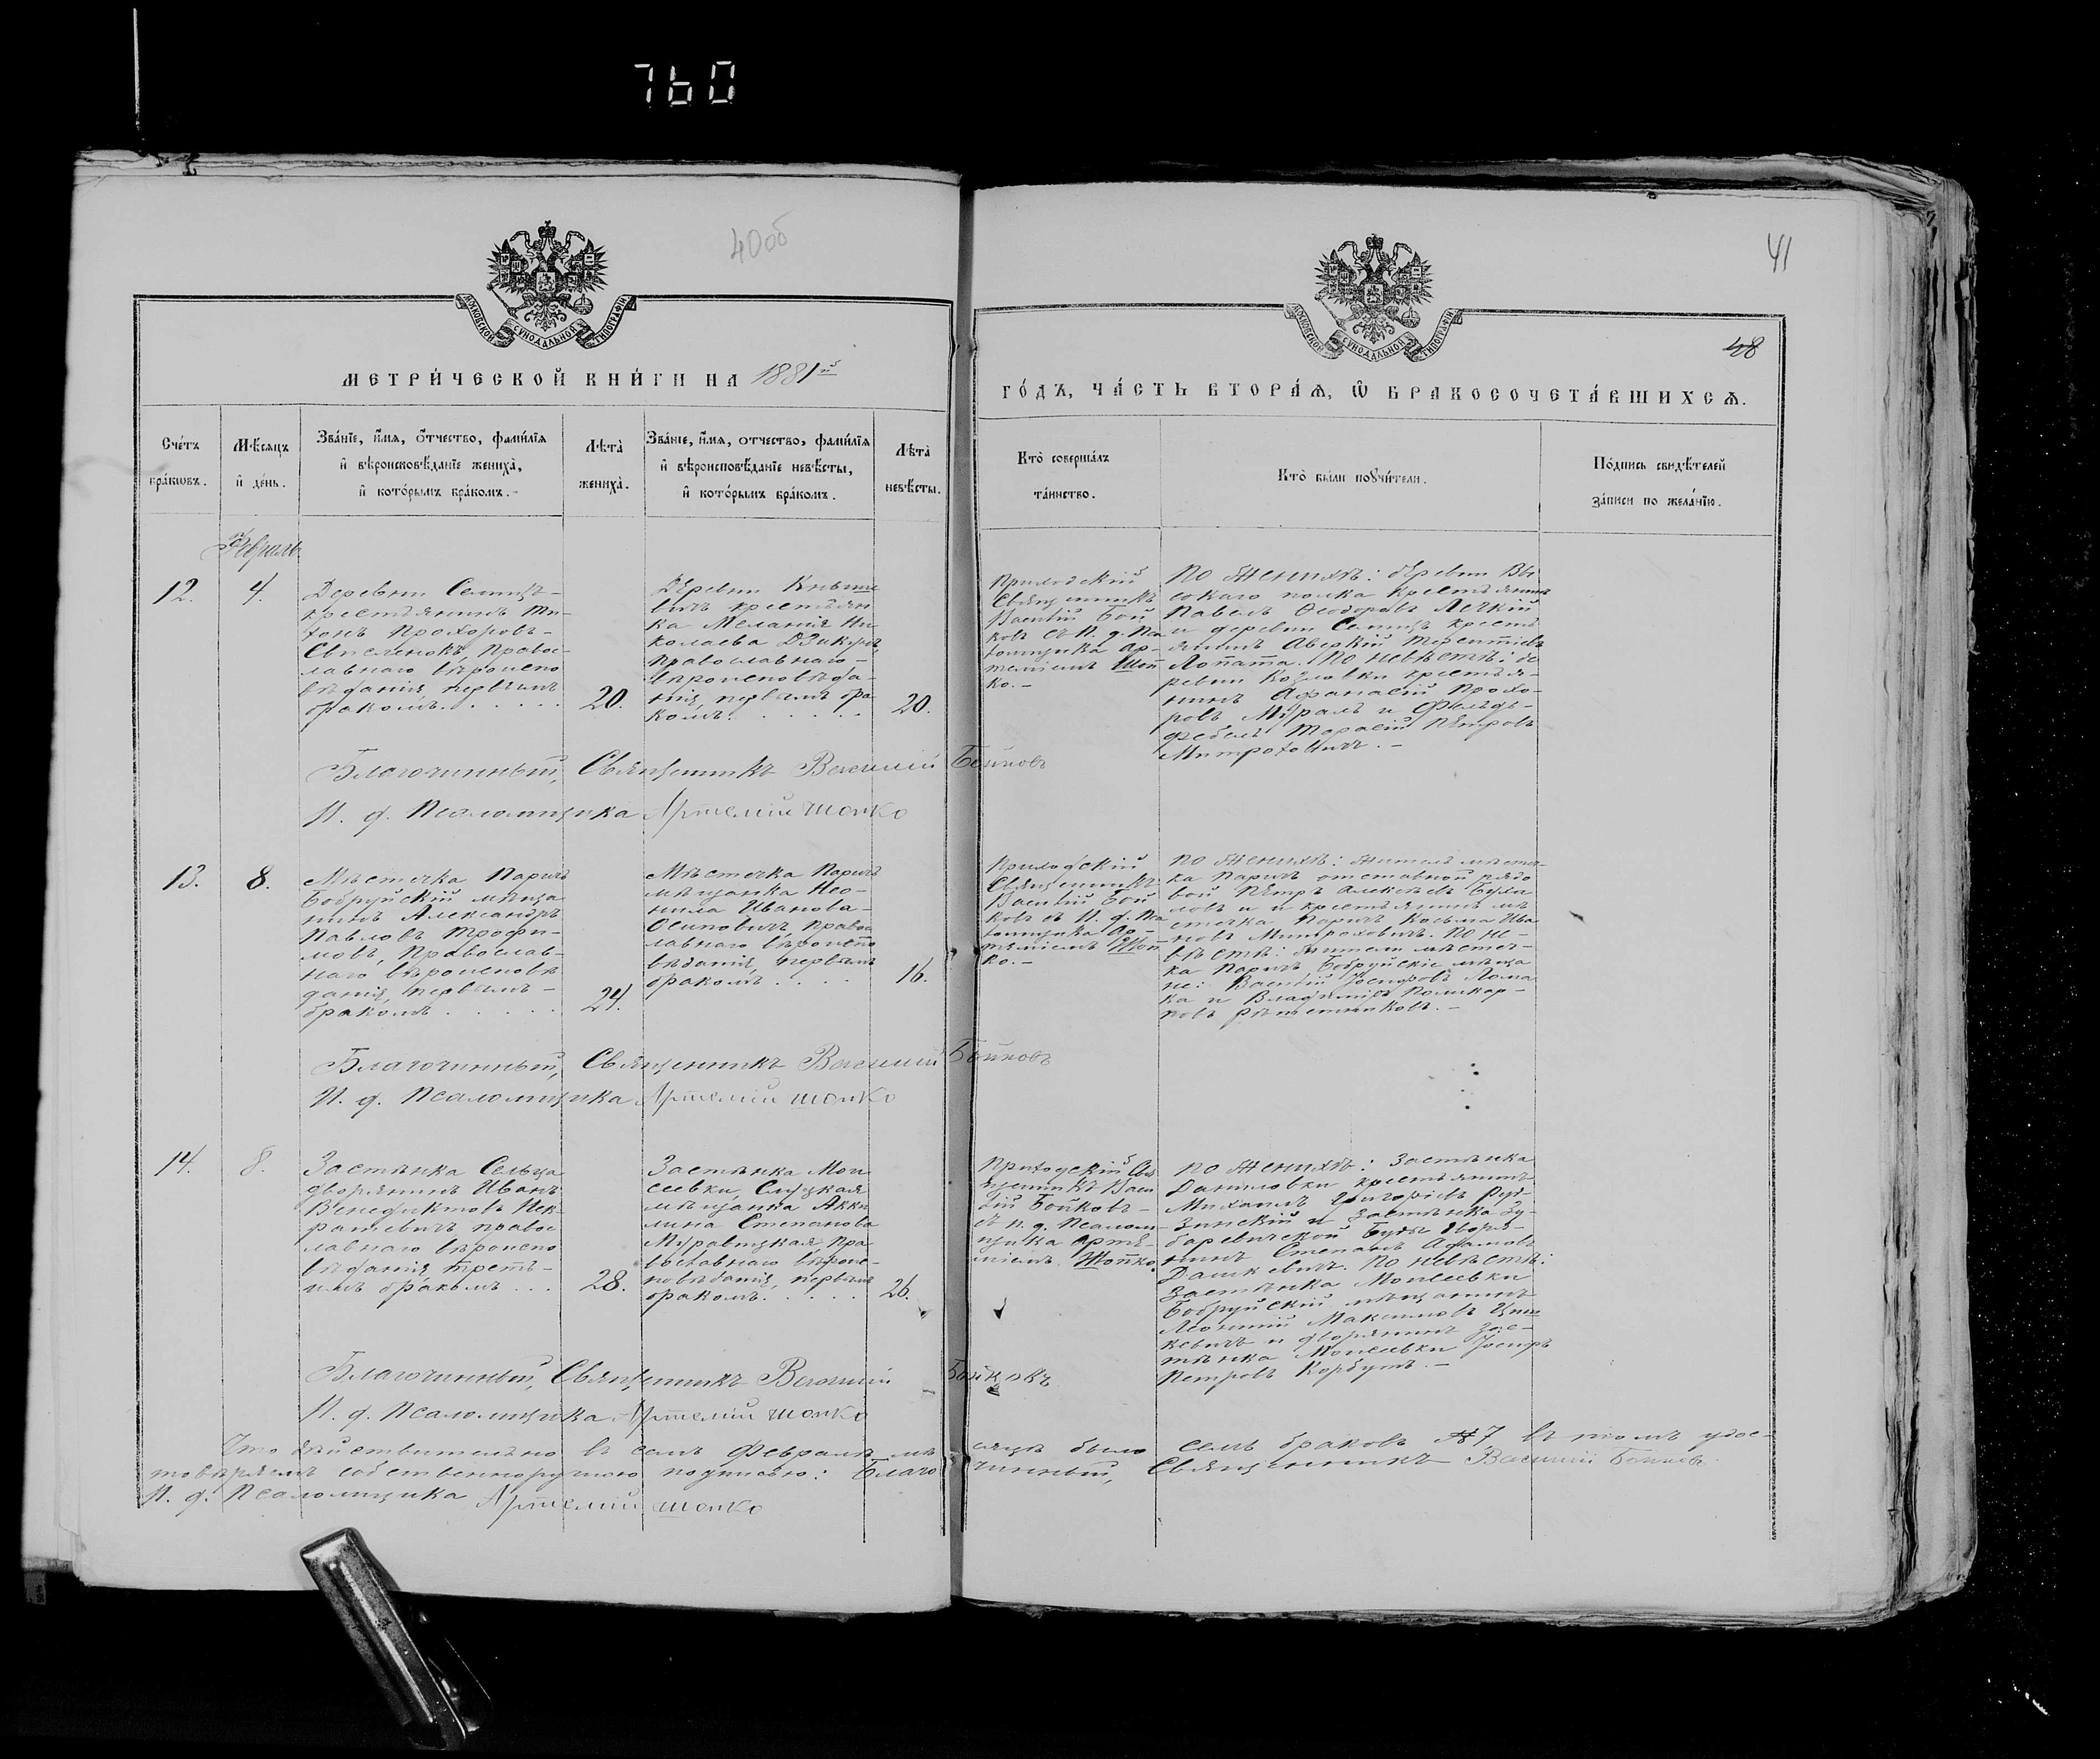 760
40об
41
48
МОСКОВСКОЙ СУНОДАЛЬНОЙ ТИПОГРАФІИ
МОСКОВСКОЙ СУНОДАЛЬНОЙ ТИПОГРАФІИ
МЕТРИ́ЧЕСКОЙ КНИ́ГИ НА 1881й
ГО́ДЪ, ЧА́СТЬ ВТОРА́Ѧ, Ѡ҆ БРАКОСОЧЕТА́ВШИХСѦ.
Сче́тъ
бра́кѡвъ.
Мѣ́сяцъ
и҆ де́нь.
Зва́нїе, и҆́мя, ѻ҆́тчество, фами́лїя
и҆ вѣроисповѣ́данїе жениха̀,
и҆ кото́рымъ бра́комъ.
Лѣта̀
жениха̀.
Зва́нїе, и҆́мя, отчество, фами́лїя
и҆ вѣроисповѣ́данїе невѣ́сты,
и҆ кото́рымъ бра́комъ.
Лѣта̀
невѣ́сты.
Кто̀ соверша́лъ
та́инство.
Кто̀ бы́ли пору́чи́тели.
По́дпись свидѣ́телей
за́писи по жела́нїю.
Февраль
12.
4.
Деревни Селищъ
крестьянинъ Ти-
хонъ Прохоровъ
православ-
лавнаго вѣроиспо
вѣданія, первымъ
бракомъ.
20.
Деревни
крестьян
ка Меланія Ни
колаева
православнаго
вѣроисповѣда-
нія, первымъ бра
комъ.
20.
Приходскій
Священникъ
Василій Бой
ковъ съ И. д. Пса
ломщика Ар-
теміемъ Шоп
ко.
По женихѣ: деревни Вы
сокаго полка крестьянинъ
Павелъ Ѳеодоровъ Легкій
и деревни Селищъ кресть
янинъ Аверкій Терентіевъ
Лопата. По невѣстѣ: де
ревни Козловки крестья-
нинъ Афанасій Прохо-
ровъ и Фельд-
фебель Тарасій Петровъ
Митроховичъ.
Благочинный, Священникъ Василій Бойковъ
И. д. Псаломщика Артемій Шопко
13.
8.
Мѣстечка Паричъ
Бобруйскій мѣща
нинъ Александръ
Павловъ Трофи-
мовъ, православ-
наго вѣроисповѣ
данія, первымъ
бракомъ
24.
Мѣстечка Паричъ
мѣщанка Нео-
нила Иванова
Осиповичъ, право
лавнаго вѣроиспо
вѣданія, первымъ
бракомъ
16.
Приходскій
Священникъ
Василій Бой
ковъ съ И. д. Пса
ломщика Ар-
теміемъ Шоп
ко.
По женихѣ: житель мѣсте
ка Паричъ отставной рядо
вой Петръ Алексѣевъ
ловъ и крестьянинъ мѣ
стечка Паричъ Козьма Ива
новъ Митроховичъ. По не-
вѣстѣ: жители мѣстеч-
ка Паричъ, Бобруйскіе мѣща
не: Василій Іосифовъ Лома
ка и Владиміръ Поликар-
повъ Рѣшетниковъ.
Благочинный, Священникъ Василій Бойковъ
И. д. Псаломщика Артемій Шопко
14.
8.
Застѣнка Сельца
дворянинъ Иванъ
Венедиктовъ
правос
лавнаго вѣроиспо
вѣданія, треть-
имъ бракомъ
28.
Застѣнка Мои
сеевки, Слуцкая
мѣщанка Аку
лина Степанова
Муравицкая, пра
вославнаго вѣроис-
повѣданія, первымъ
бракомъ.
26.
Приходскій Свя
щенникъ Васи
лій Бойковъ
съ И. д. Псалом-
щика Арте-
міемъ Шопко.
По женихѣ: застѣнка
Даниловки крестьянинъ
Михаилъ Григорьевъ Руд-
зинскій и застѣнка
Буды дворя-
нинъ Степанъ Адамовъ
Дашкевичъ. По невѣстѣ:
застѣнка Моисеевки
Бобруйскій мѣщанинъ
Леонтій Максимовъ
кевичъ и дворянинъ зас-
тѣнка Моисеевки Іосифъ
Петровъ Корбутъ.
Благочинный, Священникъ Василій Бойковъ
И. д. Псаломщика Артемій Шопко
Что дѣйствительно въ семъ Февралѣ мѣсяцѣ было семь браковъ №7 въ томъ удос-
товѣряемъ собственноручною подписью: Благочинный, Священникъ Василій Бойковъ
И. д. Псаломщика Артемій Шопко